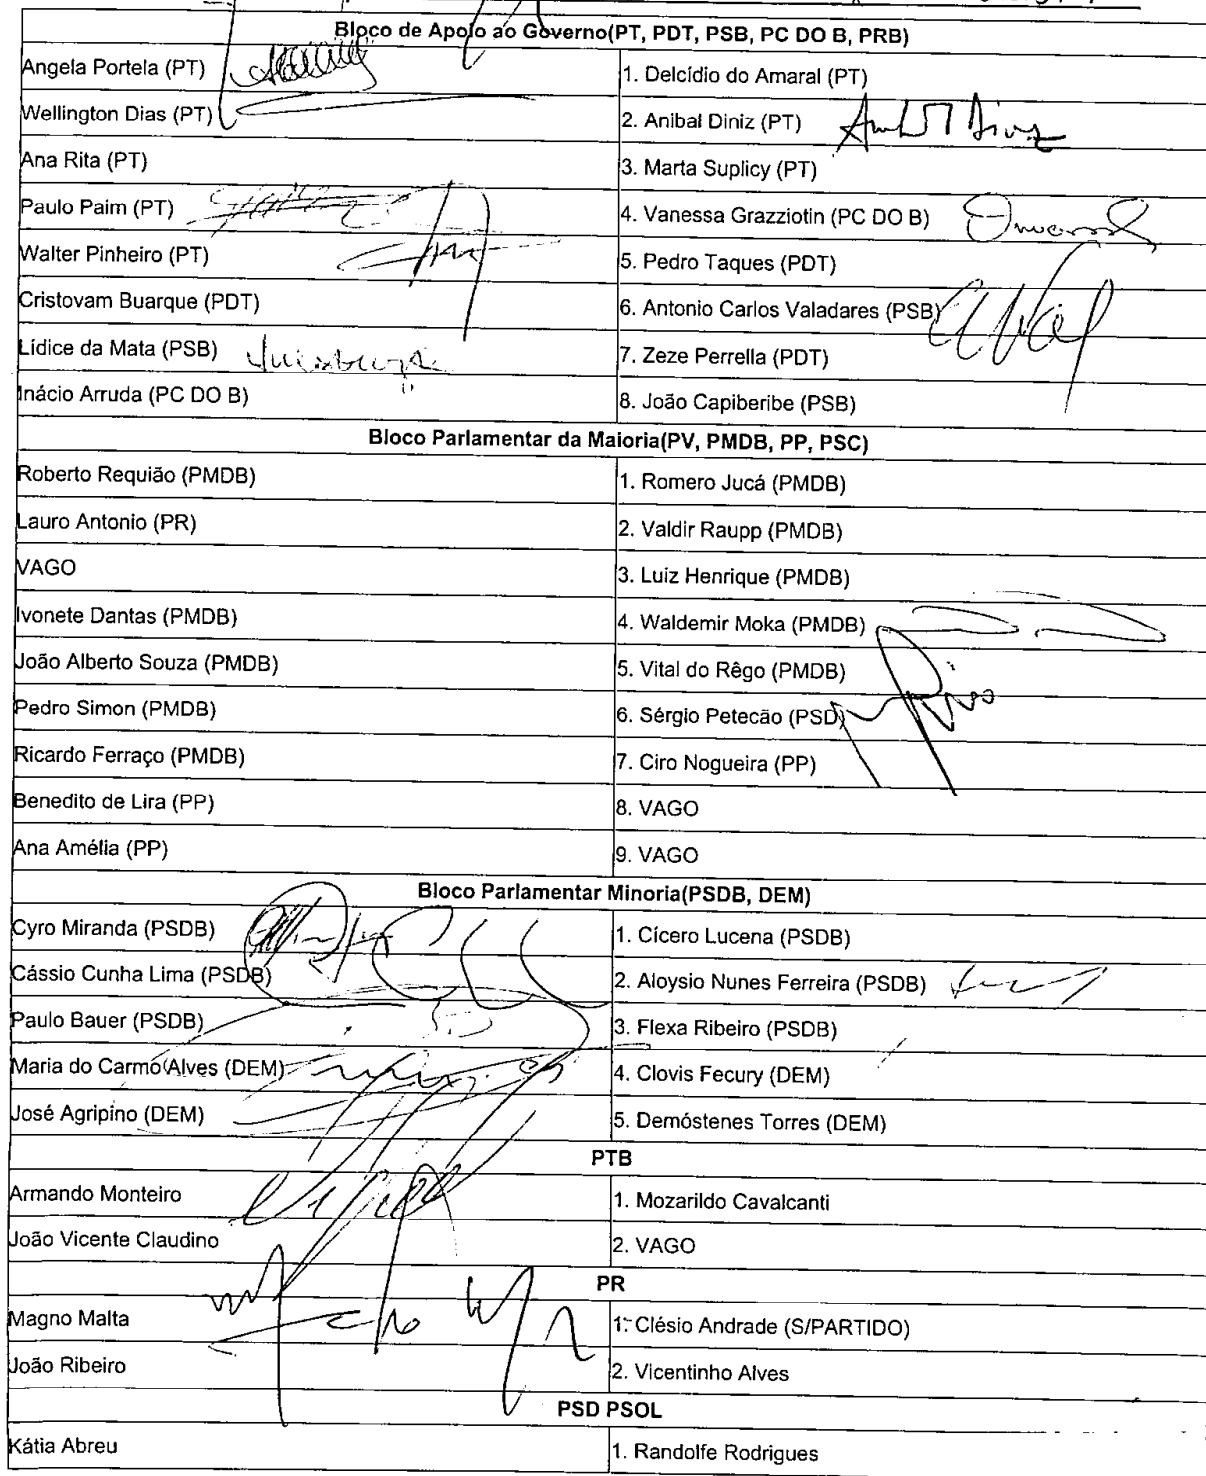 Bloco de Apoio ao Governo(PT, PDT, PSB, PC DO B, PRB)
Angela Portela (PT)
1. Delcídio do Amaral (PT)
Wellington Dias (PT)
2. Anibal Diniz (PT)
Ana Rita (PT)
3. Marta Suplicy (PT)
Paulo Paim (PT)
4. Vanessa Grazziotin (PC DO B)
Walter Pinheiro (PT)
5. Pedro Taques (PDT)
Cristovam Buarque (PDT)
6. Antonio Carlos Valadares (PSB)
Lídice da Mata (PSB)
7. Zeze Perrella (PDT)
Inácio Arruda (PC DO B)
8. João Capiberibe (PSB)
Bloco Parlamentar da Maioria(PV, PMDB, PP, PSC)
Roberto Requião (PMDB)
1. Romero Jucá (PMDB)
Lauro Antonio (PR)
2. Valdir Raupp (PMDB)
VAGO
3. Luiz Henrique (PMDB)
Ivonete Dantas (PMDB)
4. Waldemir Moka (PMDB)
João Alberto Souza (PMDB)
5. Vital do Rêgo (PMDB)
Pedro Simon (PMDB)
6. Sérgio Petecão (PSD)
Ricardo Ferraço (PMDB)
7. Ciro Nogueira (PP)
Benedito de Lira (PP)
8. VAGO
Ana Amélia (PP)
9. VAGO
Bloco Parlamentar Minoria(PSDB, DEM)
Cyro Miranda (PSDB)
1. Cícero Lucena (PSDB)
Cássio Cunha Lima (PSDB)
2. Aloysio Nunes Ferreira (PSDB)
Paulo Bauer (PSDB)
3. Flexa Ribeiro (PSDB)
Maria do Carmo Alves (DEM)
4. Clovis Fecury (DEM)
José Agripino (DEM)
5. Demóstenes Torres (DEM)
PTB
Armando Monteiro
1. Mozarildo Cavalcanti
João Vicente Claudino
2. VAGO
PR
Magno Malta
1. Clésio Andrade (S/PARTIDO)
João Ribeiro
2. Vicentinho Alves
PSD PSOL
Kátia Abreu
1. Randolfe Rodrigues